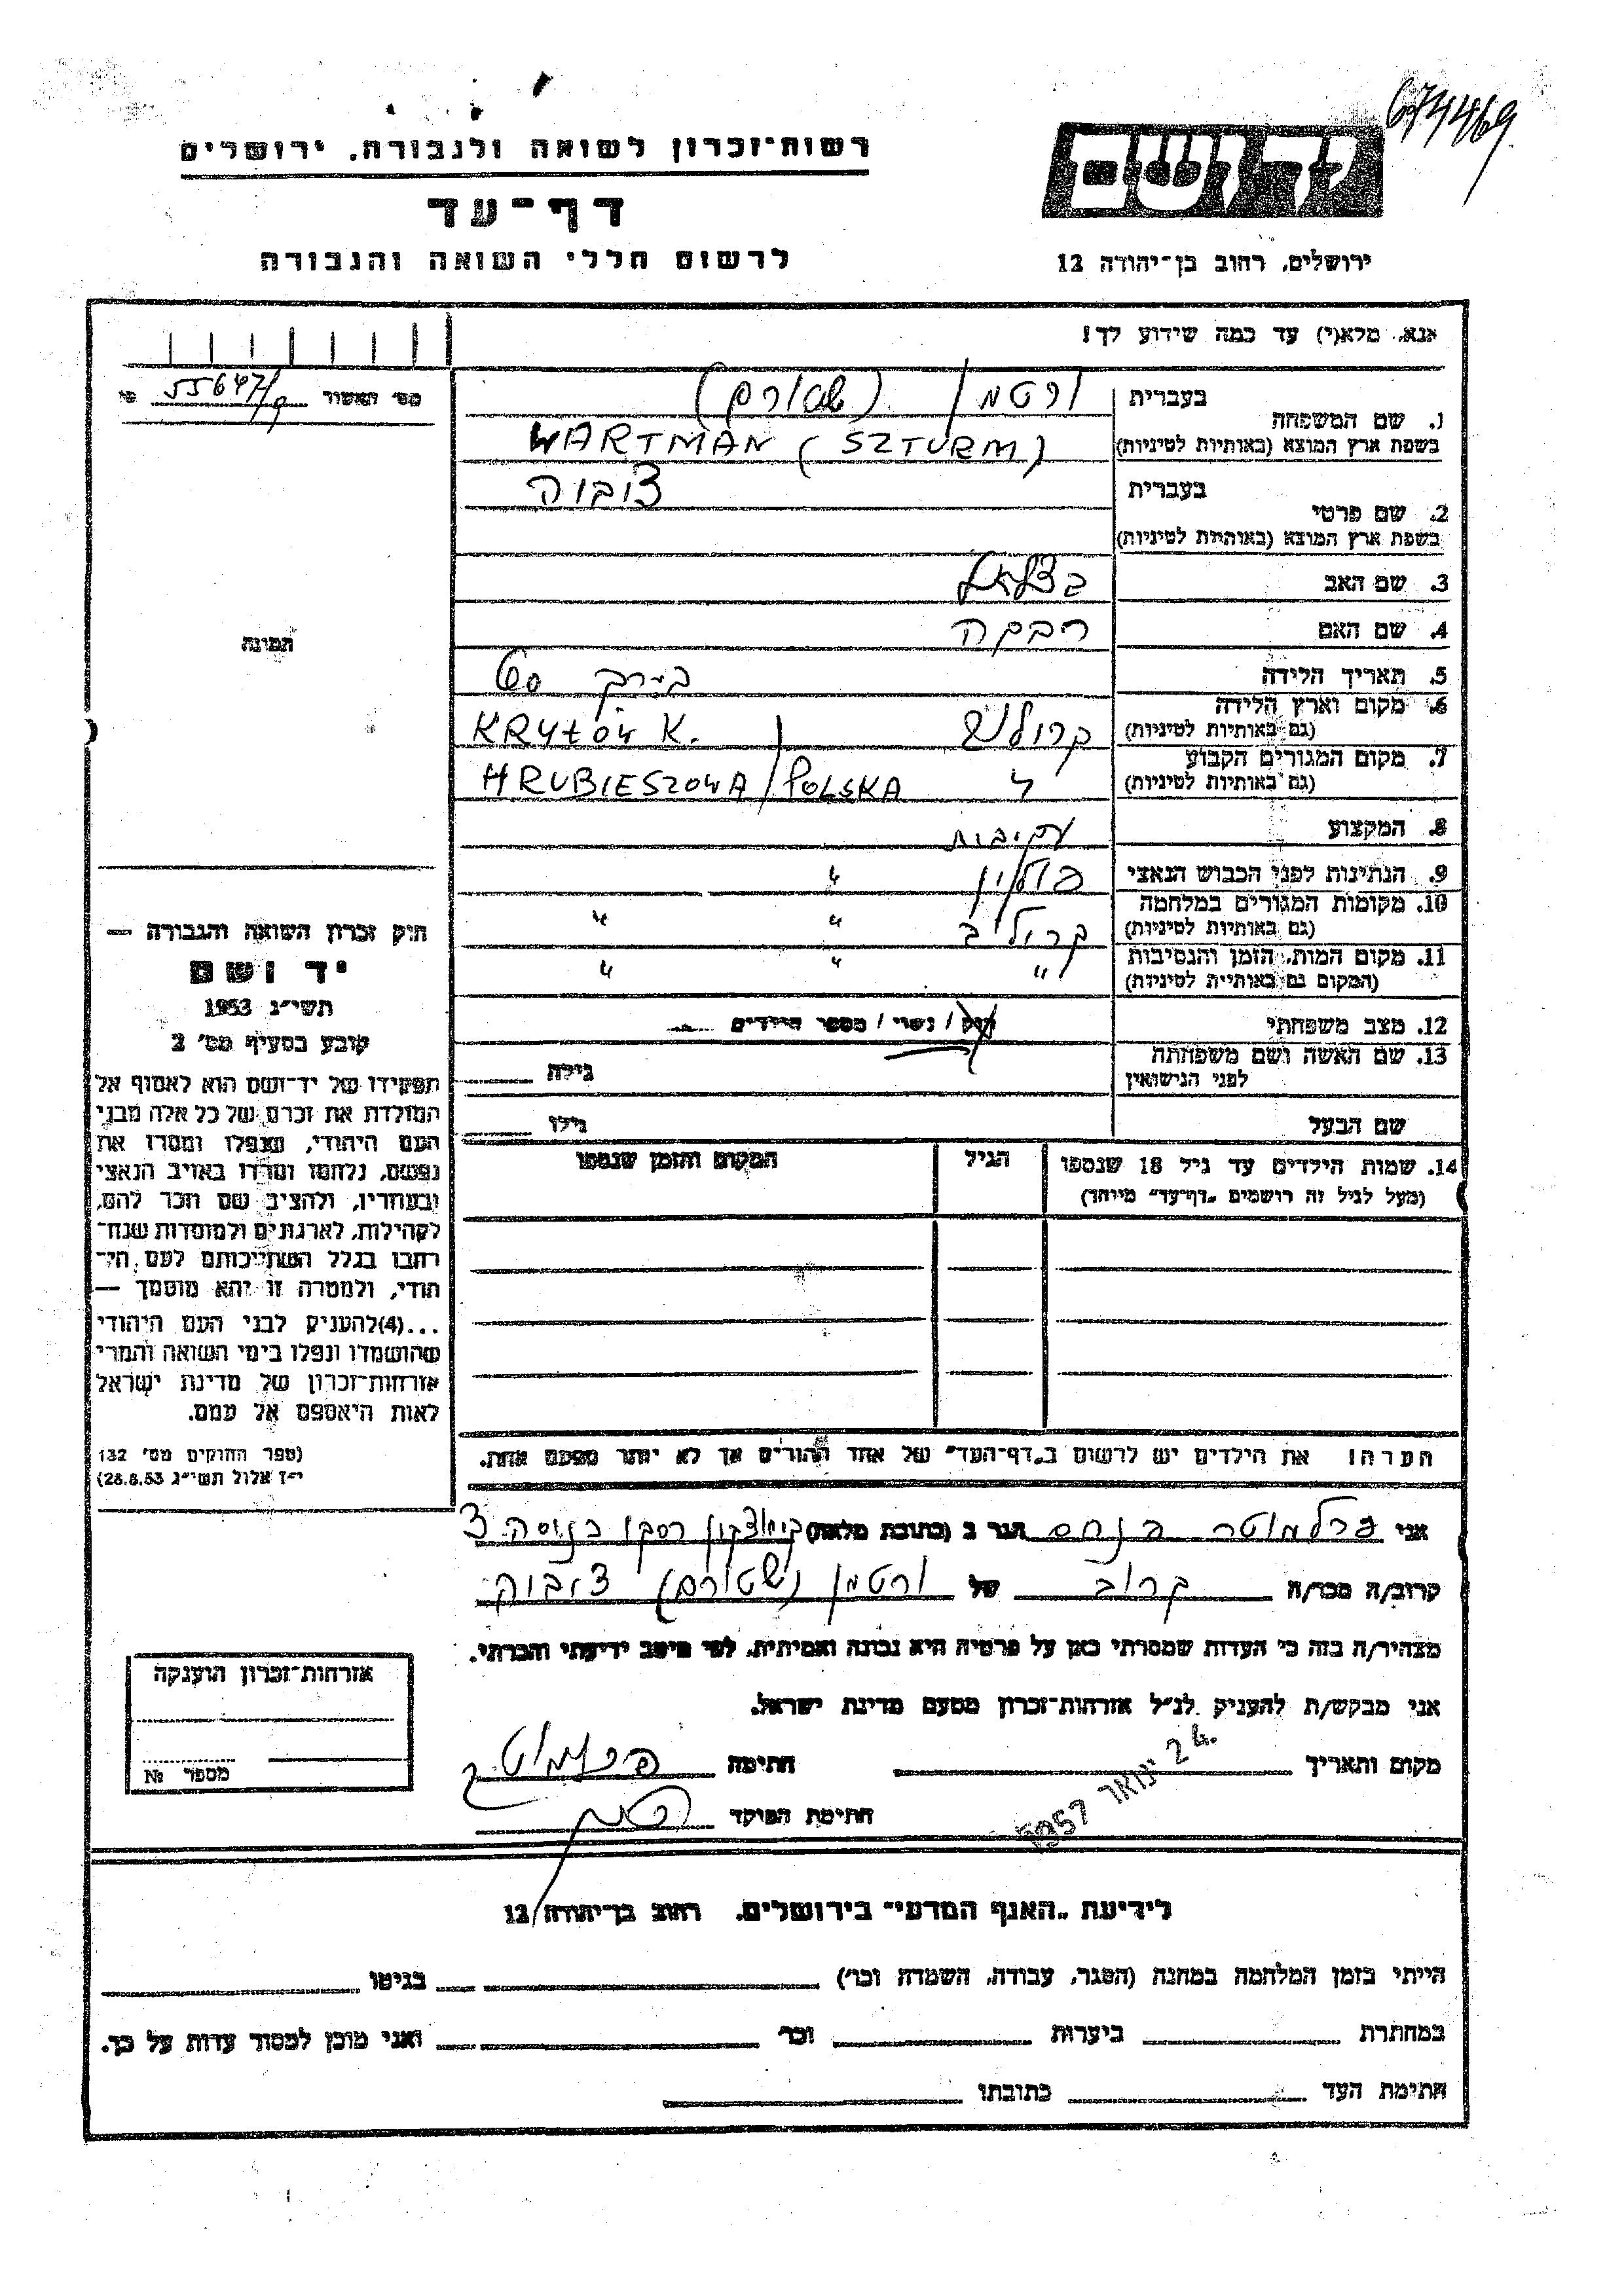 674469
רשות־זכרון לשואה ולגבורה, ירושלים
יד ושם
דף־עד
לרשום חללי השואה והגבורה
ירושלים, רחוב בן־יהודה 12
אנא, מלא(י) עד כמה שידוע לך!
מס׳ האשור
בעברית ורטמן (שטורם)
1. שם המשפחה
בשפת ארץ המוצא (באותיות לטיניות) WARTMAN (SZTURM)
בעברית צוביה
2. שם פרטי
בשפת ארץ המוצא (באותיות לטיניות)
3. שם האב בצלאל
4. שם האם רבקה
5. תאריך הלידה בערך 60
6. מקום וארץ הלידה
(גם באותיות לטיניות) KRYŁÓW K.
7. מקום המגורים הקבוע
(גם באותיות לטיניות) HRUBIESZOWA / POLSKA
8. המקצוע
9. הנתינות לפני הכבוש הנאצי פולין "
10. מקומות המגורים במלחמה
(גם באותיות לטיניות) " "
11. מקום המות, הזמן והנסיבות
(המקום גם באותיות לטיניות) " " "
12. מצב משפחתי רווק / נשוי / מספר הילדים
13. שם האשה ושם משפחתה
לפני הנישואין גילה
שם הבעל גילו
תמונה
חוק זכרון השואה והגבורה —
יד ושם
תשי״ג 1953
קובע בסעיף מס׳ 2
תפקידו של יד־ושם הוא לאסוף אל
המולדת את זכרם של כל אלה מבני
העם היהודי, שנפלו ומסרו את
נפשם, נלחמו ומרדו באויב הנאצי
ובעוזריו, ולהציב שם וזכר להם,
לקהילות, לארגונים ולמוסדות שנח־
רבו בגלל השתייכותם לעם הי־
הודי, ולמטרה זו יהא מוסמך —
...(4)להעניק לבני העם היהודי
שהושמדו ונפלו בימי השואה והמרי
אזרחות־זכרון של מדינת ישראל
לאות היאספם אל עמם.
(ספר החוקים מס׳ 132
י״ז אלול תשי״ג 28.8.53)
14. שמות הילדים עד גיל 18 שנספו הגיל המקום והזמן שנספו
(מעל לגיל זה רושמים „דף־עד״ מיוחד)
הערה! את הילדים יש לרשום ב„דף־העד״ של אחד ההורים אך לא יותר מפעם אחת.
אני פרלמוטר פנחס הגר ב (כתובת מלאה)
קרוב/ה מכר/ה קרוב של ורטמן (שטורם) צוביה
מצהיר/ה בזה כי העדות שמסרתי כאן על פרטיה היא נכונה ואמיתית, לפי מיטב ידיעתי והכרתי.
אני מבקש/ת להעניק לנ״ל אזרחות־זכרון מטעם מדינת ישראל.
מקום ותאריך 24. ינואר 1957 חתימה
חתימת הפוקד
אזרחות־זכרון הוענקה
מספר №
לידיעת „האגף המדעי״ בירושלים, רחוב בן־יהודה 12
הייתי בזמן המלחמה במחנה (הסגר, עבודה, השמדה וכו׳) בגיטו
במחתרת ביערות וכו׳ ואני מוכן למסור עדות על כך.
חתימת העד כתובתו